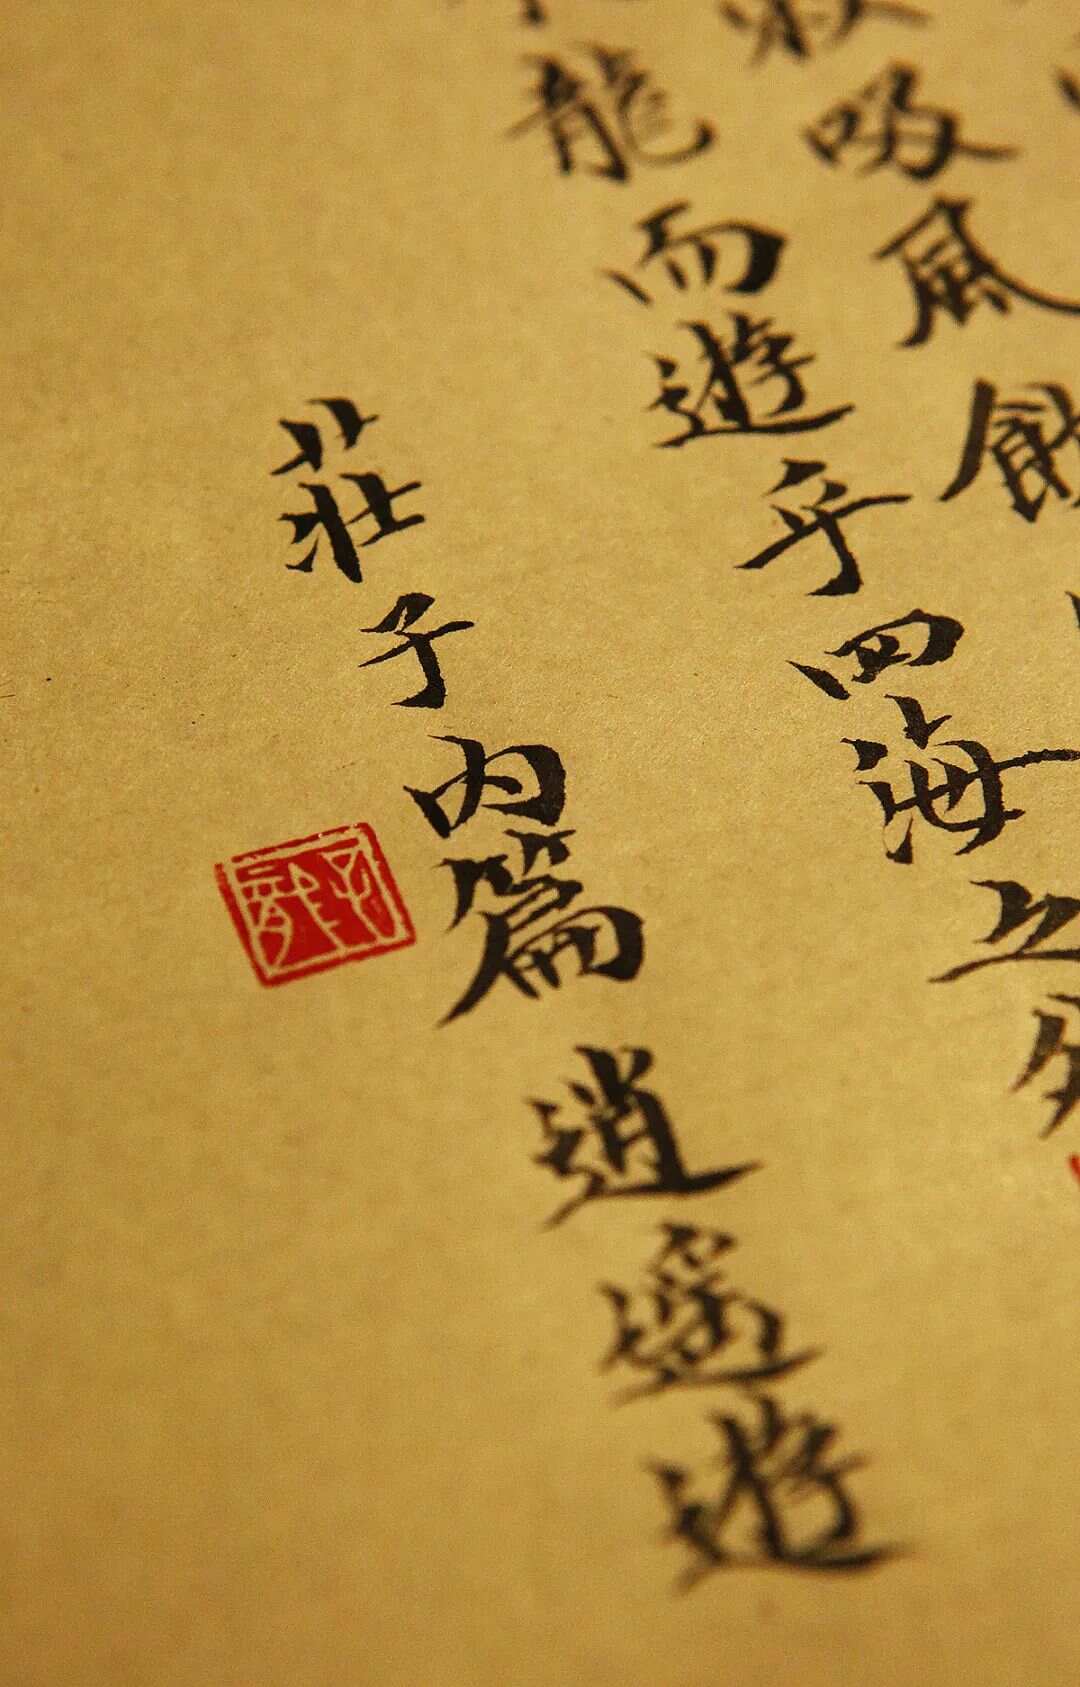 穀吸風飲
龍而遊乎四海之外
莊子內篇 逍遙遊